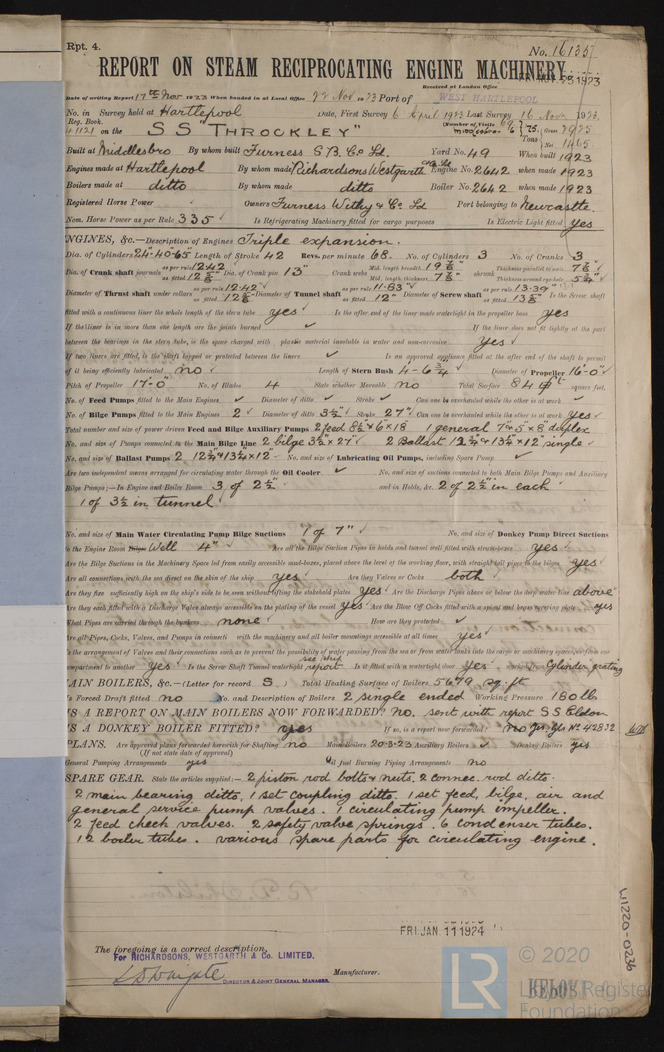 Rpt. 4.
No. 16135
REPORT ON STEAM RECIPROCATING ENGINE MACHINERY.
Received at London Office
Date of writing Report 17th Nov 1923 When handed in at Local Office 22 Nov 1923 Port of WEST HARTLEPOOL
No. in Survey held at Hartlepool Date, First Survey 6 April 1923 Last Survey 16 Nov 1923
Reg. Book. (Number of Visits
41121 on the SS "THROCKLEY" Tons Gross
Net
Built at Middlesbro By whom built Furness S.B. Co Ld. Yard No. 49 When built 1923
Engines made at Hartlepool By whom made Richardsons Westgarth & Co Ld Engine No. 2642 when made 1923
Boilers made at ditto By whom made ditto Boiler No. 2642 when made 1923
Registered Horse Power Owners Furness Withy & Co Ld Port belonging to Newcastle.
Nom. Horse Power as per Rule 335 Is Refrigerating Machinery fitted for cargo purposes Is Electric Light fitted yes
ENGINES, &c.—Description of Engines Triple expansion.
Dia. of Cylinders 24-40-65 Length of Stroke 42 Revs. per minute 68. No. of Cylinders 3 No. of Cranks 3
Dia. of Crank shaft journals as per rule 12.42 Dia. of Crank pin 13" Crank webs Mid. length breadth Thickness parallel to axis
as fitted Mid. length thickness shrunk Thickness around eye-hole
Diameter of Thrust shaft under collars as per rule 12.42 Diameter of Tunnel shaft as per rule 11.83 Diameter of Screw shaft as per rule 13.39 Is the Screw shaft
as fitted as fitted 12" as fitted
fitted with a continuous liner the whole length of the stern tube yes Is the after end of the liner made watertight in the propeller boss yes
If the liner is in more than one length are the joints burned ✓ If the liner does not fit tightly at the part
between the bearings in the stern tube, is the space charged with a plastic material insoluble in water and non-corrosive yes
If two liners are fitted, is the shaft lapped or protected between the liners ✓ Is an approved appliance fitted at the after end of the shaft to permit
of it being efficiently lubricated no Length of Stern Bush 4-6¾ Diameter of Propeller 16-0"
Pitch of Propeller 17-0" No. of Blades 4 State whether Moveable no Total Surface 84 square feet.
No. of Feed Pumps fitted to the Main Engines ✓ Diameter of ditto ✓ Stroke ✓ Can one be overhauled while the other is at work ✓
No. of Bilge Pumps fitted to the Main Engines 2 Diameter of ditto 3½" Stroke 27" Can one be overhauled while the other is at work yes
Total number and size of power driven Feed and Bilge Auxiliary Pumps 2 feed 8½ x 6 x 18 1 general 7 x 5 x 8 duplex
No. and size of Pumps connected to the Main Bilge Line 2 bilge 3½" x 27" 2 Ballast 12¼" x 13¼ x 12" single
No. and size of Ballast Pumps 2 12¼" x 13¼ x 12" No. and size of Lubricating Oil Pumps, including Spare Pump ✓
Are two independent means arranged for circulating water through the Oil Cooler ✓ No. and size of suctions connected to both Main Bilge Pumps and Auxiliary
Bilge Pumps;—In Engine and Boiler Room 3 of 2½" and in Holds, &c. 2 of 2½" in each
1 of 3½ in tunnel
No. and size of Main Water Circulating Pump Bilge Suctions 1 of 7" No. and size of Donkey Pump Direct Suctions
to the Engine Room Bilge Well 4" Are all the Bilge Suction Pipes in holds and tunnel well fitted with strum-boxes yes
Are the Bilge Suctions in the Machinery Space led from easily accessible mud-boxes, placed above the level of the working floor, with straight tail pipes to the bilges yes
Are all connections with the sea direct on the skin of the ship yes Are they Valves or Cocks both
Are they fixed sufficiently high on the ship's side to be seen without lifting the stokehold plates yes Are the Discharge Pipes above or below the deep water line above
Are they each fitted with a Discharge Valve always accessible on the plating of the vessel yes Are the Blow Off Cocks fitted with a spigot and brass covering plate yes
What Pipes are carried through the bunkers none How are they protected ✓
Are all Pipes, Cocks, Valves, and Pumps in connection with the machinery and all boiler mountings accessible at all times yes
Is the arrangement of Valves and their connections such as to prevent the possibility of water passing from the sea or from water tanks into the cargo or machinery spaces, or from one
compartment to another yes Is the Screw Shaft Tunnel watertight see ship report Is it fitted with a watertight door yes worked from Cylinder grating
MAIN BOILERS, &c.—(Letter for record S.) Total Heating Surface of Boilers 5679 sq. ft
Is Forced Draft fitted no No. and Description of Boilers 2 single ended Working Pressure 180 lb
IS A REPORT ON MAIN BOILERS NOW FORWARDED? no. sent with report SS Eldon
IS A DONKEY BOILER FITTED? yes If so, is a report now forwarded? no
PLANS. Are approved plans forwarded herewith for Shafting no Main Boilers 20-3-23 Auxiliary Boilers ✓ Donkey Boilers yes
(If not state date of approval)
General Pumping Arrangements yes Oil fuel Burning Piping Arrangements no
SPARE GEAR. State the articles supplied:— 2 piston rod bolts & nuts, 2 connec. rod ditto.
2 main bearing ditto, 1 set coupling ditto. 1 set feed, bilge, air and
general service pump valves. 1 circulating pump impeller.
2 feed check valves. 2 safety valve springs. 6 condenser tubes.
12 boiler tubes. various spare parts for circulating engine.
FRI. JAN 11 1924
The foregoing is a correct description,
For RICHARDSONS, WESTGARTH & Co. LIMITED.
DIRECTOR & JOINT GENERAL MANAGER. Manufacturer.
W1220-0236
© 2020
LR
Lloyd's Register
Foundation